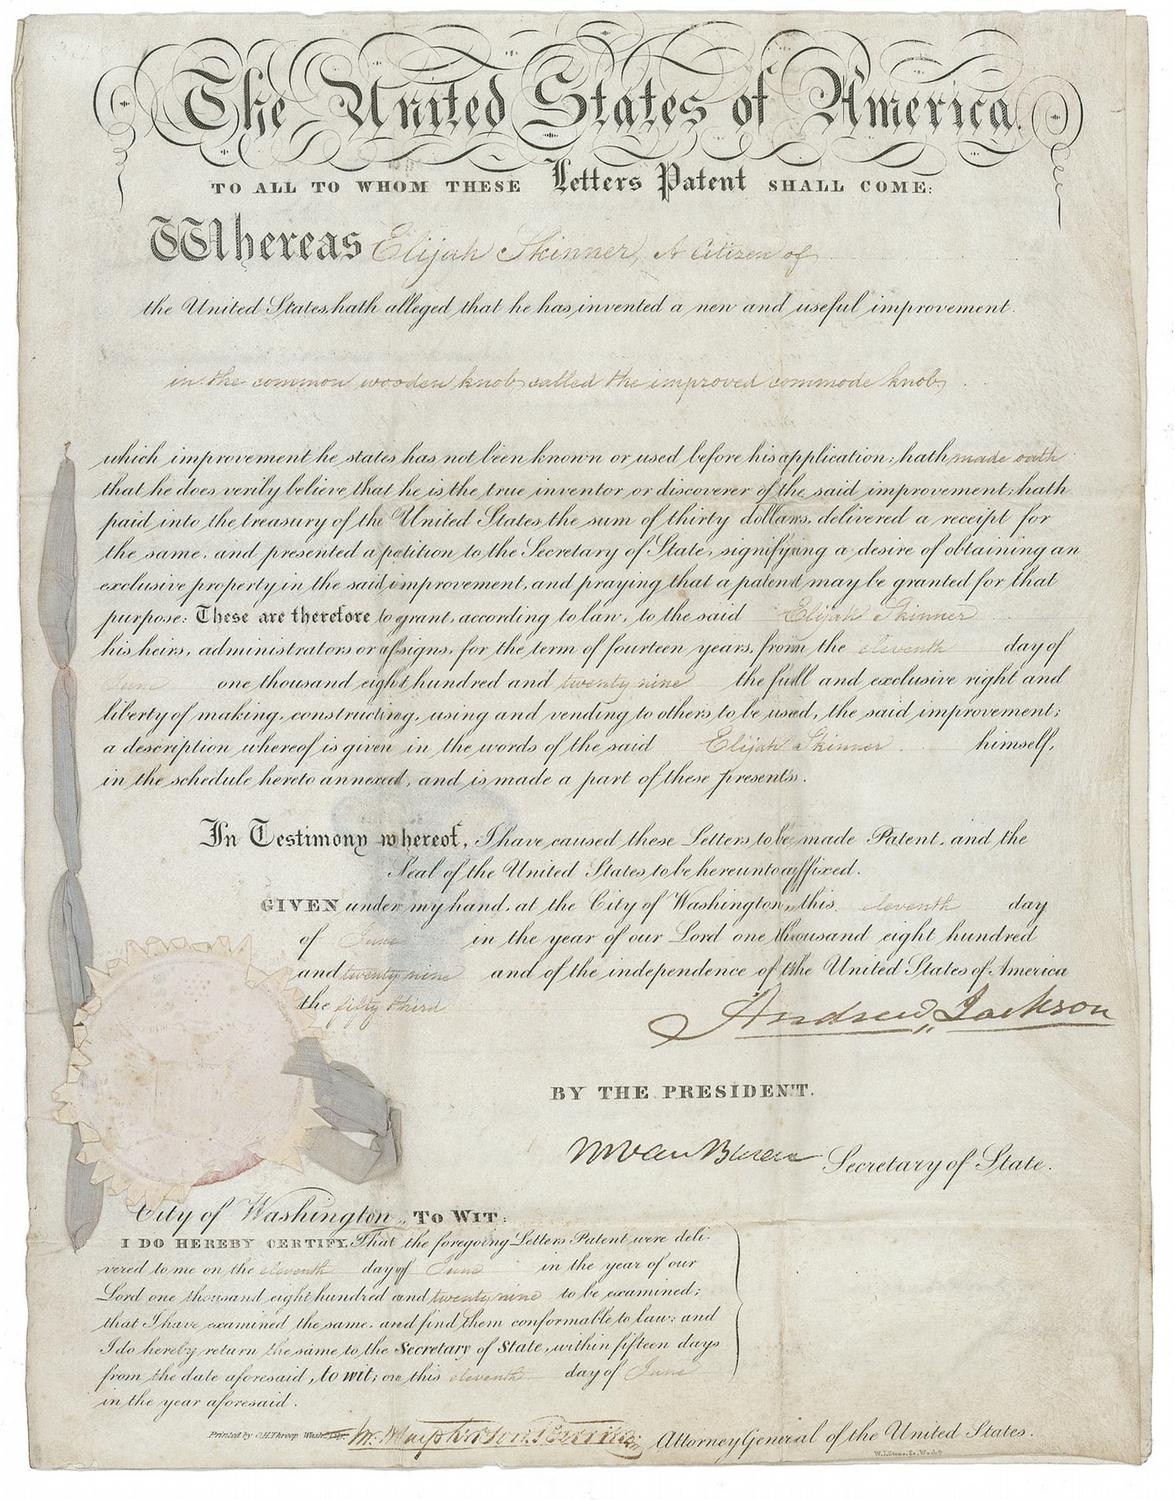 The United States of America.
TO ALL TO WHOM THESE Letters Patent SHALL COME:
Whereas Elijah Skinner, A Citizen of
the United States, hath alleged that he has invented a new and useful improvement
in the common wooden knob called the improved commode knob
which improvement he states has not been known or used before his application; hath made oath
that he does verily believe that he is the true inventor or discoverer of the said improvement; hath
paid into the treasury of the United States, the sum of thirty dollars, delivered a receipt for
the same, and presented a petition to the Secretary of State, signifying a desire of obtaining an
exclusive property in the said improvement, and praying that a patent may be granted for that
purpose: These are therefore to grant, according to law, to the said Elijah Skinner
his heirs, administrators or assigns, for the term of fourteen years, from the eleventh day of
June one thousand eight hundred and twenty nine the full and exclusive right and
liberty of making, constructing, using and vending to others to be used, the said improvement;
a description whereof is given in the words of the said Elijah Skinner himself,
in the schedule hereto annexed, and is made a part of these presents.
In Testimony whereof, I have caused these Letters to be made Patent, and the
Seal of the United States to be hereunto affixed.
GIVEN under my hand, at the City of Washington, this eleventh day
of June in the year of our Lord one thousand eight hundred
and twenty nine and of the independence of the United States of America
the fifty third
Andrew Jackson
BY THE PRESIDENT.
M Van Buren Secretary of State.
City of Washington, TO WIT:
I DO HEREBY CERTIFY, That the foregoing Letters Patent were deli-
vered to me on the eleventh day of June in the year of our
Lord one thousand eight hundred and twenty nine to be examined;
that I have examined the same, and find them conformable to law; and
I do hereby return the same to the Secretary of State, within fifteen days
from the date aforesaid, to wit; on this eleventh day of June
in the year aforesaid.
Printed by Wash. Attorney General of the United States.